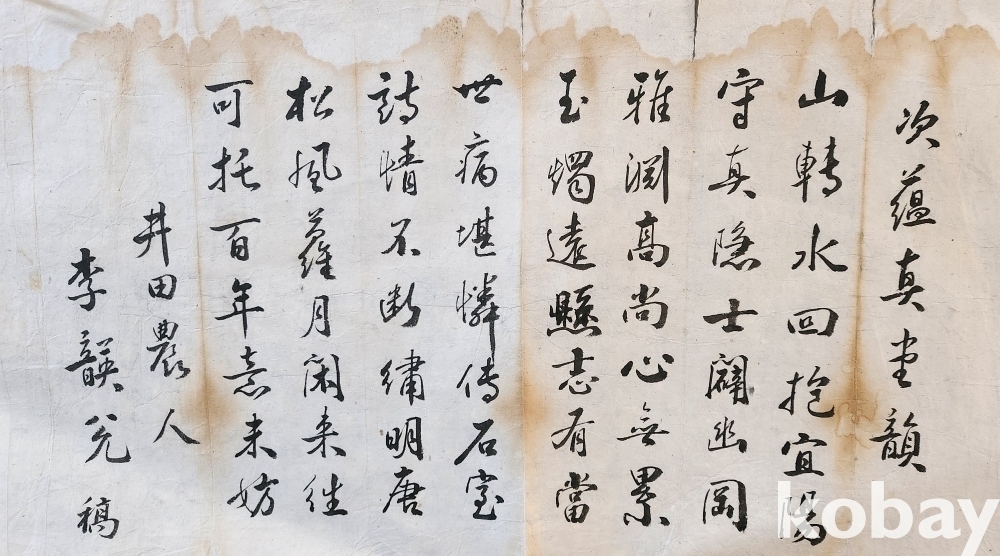 次蘊真堂韻
山轉水回抱宜陽
守真隱士闢幽岡
雅淵高尚心無累
玉燭遠懸志有當
世病堪憐傳石室
詩情不斷繡明唐
松風蘿月閑来往
可托百年意未妨
井田農人
李韺兊 稿
kobay